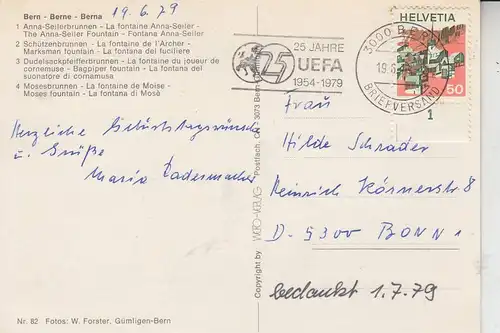 Bern - Berne - Berna
19.6.79
1 Anna-Seilerbrunnen - La fontaine Anna-Seiler -
The Anna-Seiler Fountain - Fontana Anna-Seiler
2 Schützenbrunnen - La fontaine de l'Archer -
Marksman fountain - La fontana del fuciliere
3 Dudelsackpfeiferbrunnen - La fontaine du joueur de
cornemuse - Bagpiper fountain - La fontana del
suonatore di cornamusa
4 Mosesbrunnen - La fontaine de Moïse -
Moses fountain - La fontana di Mosè
Herzliche Geburtstagswünsche
u. Grüße
Maria Ladermacher
Nr. 82 Fotos: W. Forster, Gümligen-Bern
Copyright by VERO-VERLAG Postfach, CH-3073 Bern
25 JAHRE
25 UEFA
1954-1979
3000 BERN
19.6.
BRIEFVERSAND
HELVETIA
50
1
Frau
Hilde Schrader
Heinrich Körnerstr 8
D-5300 BONN 1
bedankt 1.7.79